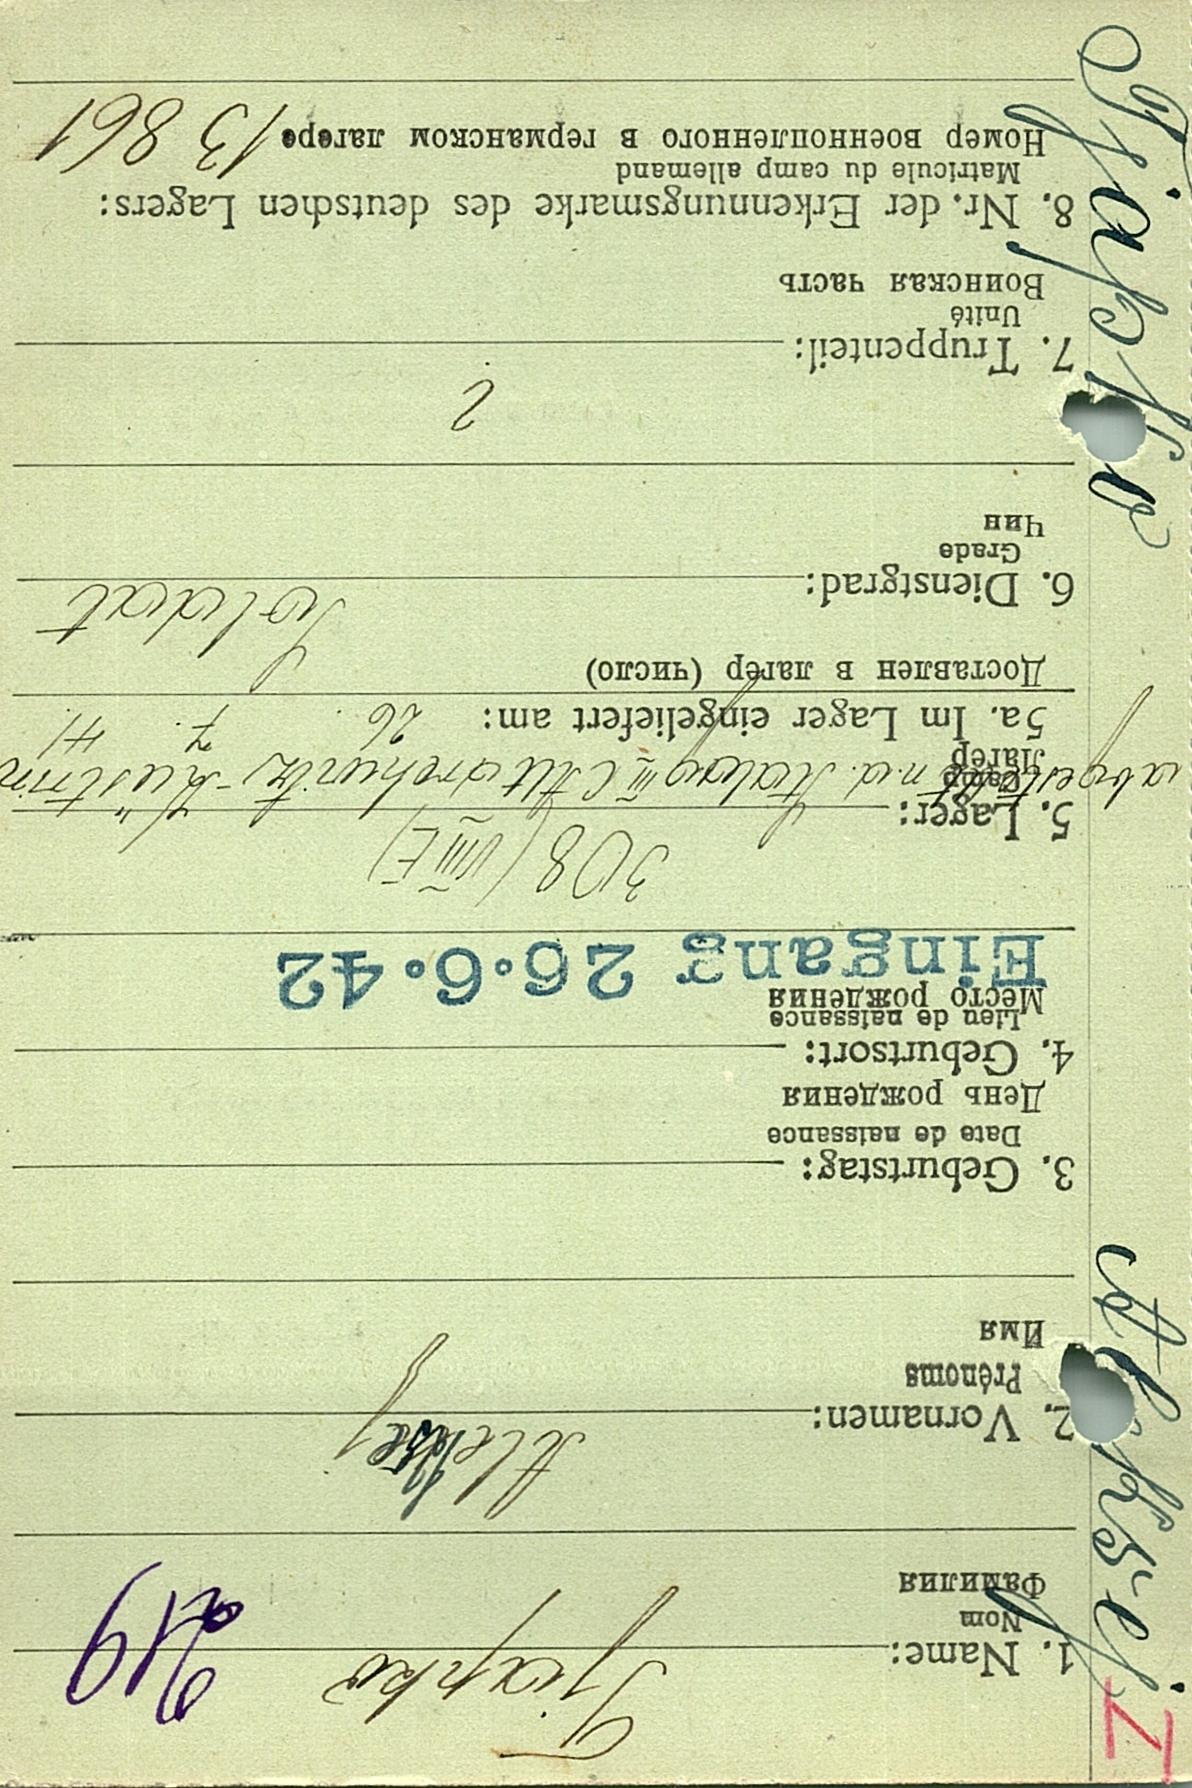 Z
Aleksej
1. Name: Tjapko
Nom
Фамилия
219
2. Vornamen: Aleksej
Prénoms
Имя
3. Geburtstag:
Date de naissance
День рождения
4. Geburtsort:
Lieu de naissance
Место рождения
Eingang 26.6.42
308 (VIII E)
5. Lager: abgestellt n.d. Stalag III C Alt Drehwitz - Küstrin
Camp
Лагерь
5a. Im Lager eingeliefert am: 26. 7. 41.
Доставлен в лагер (число)
6. Dienstgrad: Soldat
Grade
Чин
?
7. Truppenteil:
Unité
Воинская часть
8. Nr. der Erkennungsmarke des deutschen Lagers:
Matricule du camp allemand
Номер военнопленного в германском лагере 13 861